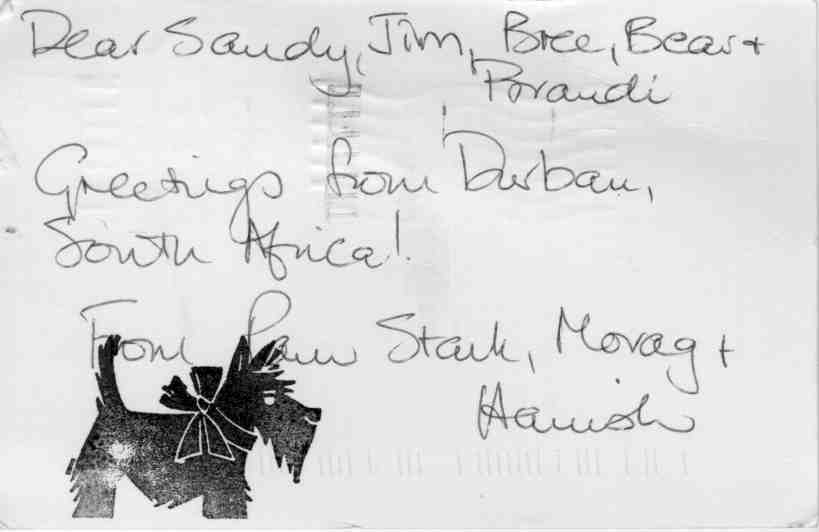 Dear Sandy, Jim, Bree, Bear +
Porandi
Greetings from Durban,
South Africa!
From Pam Stark, Morag +
Hamish